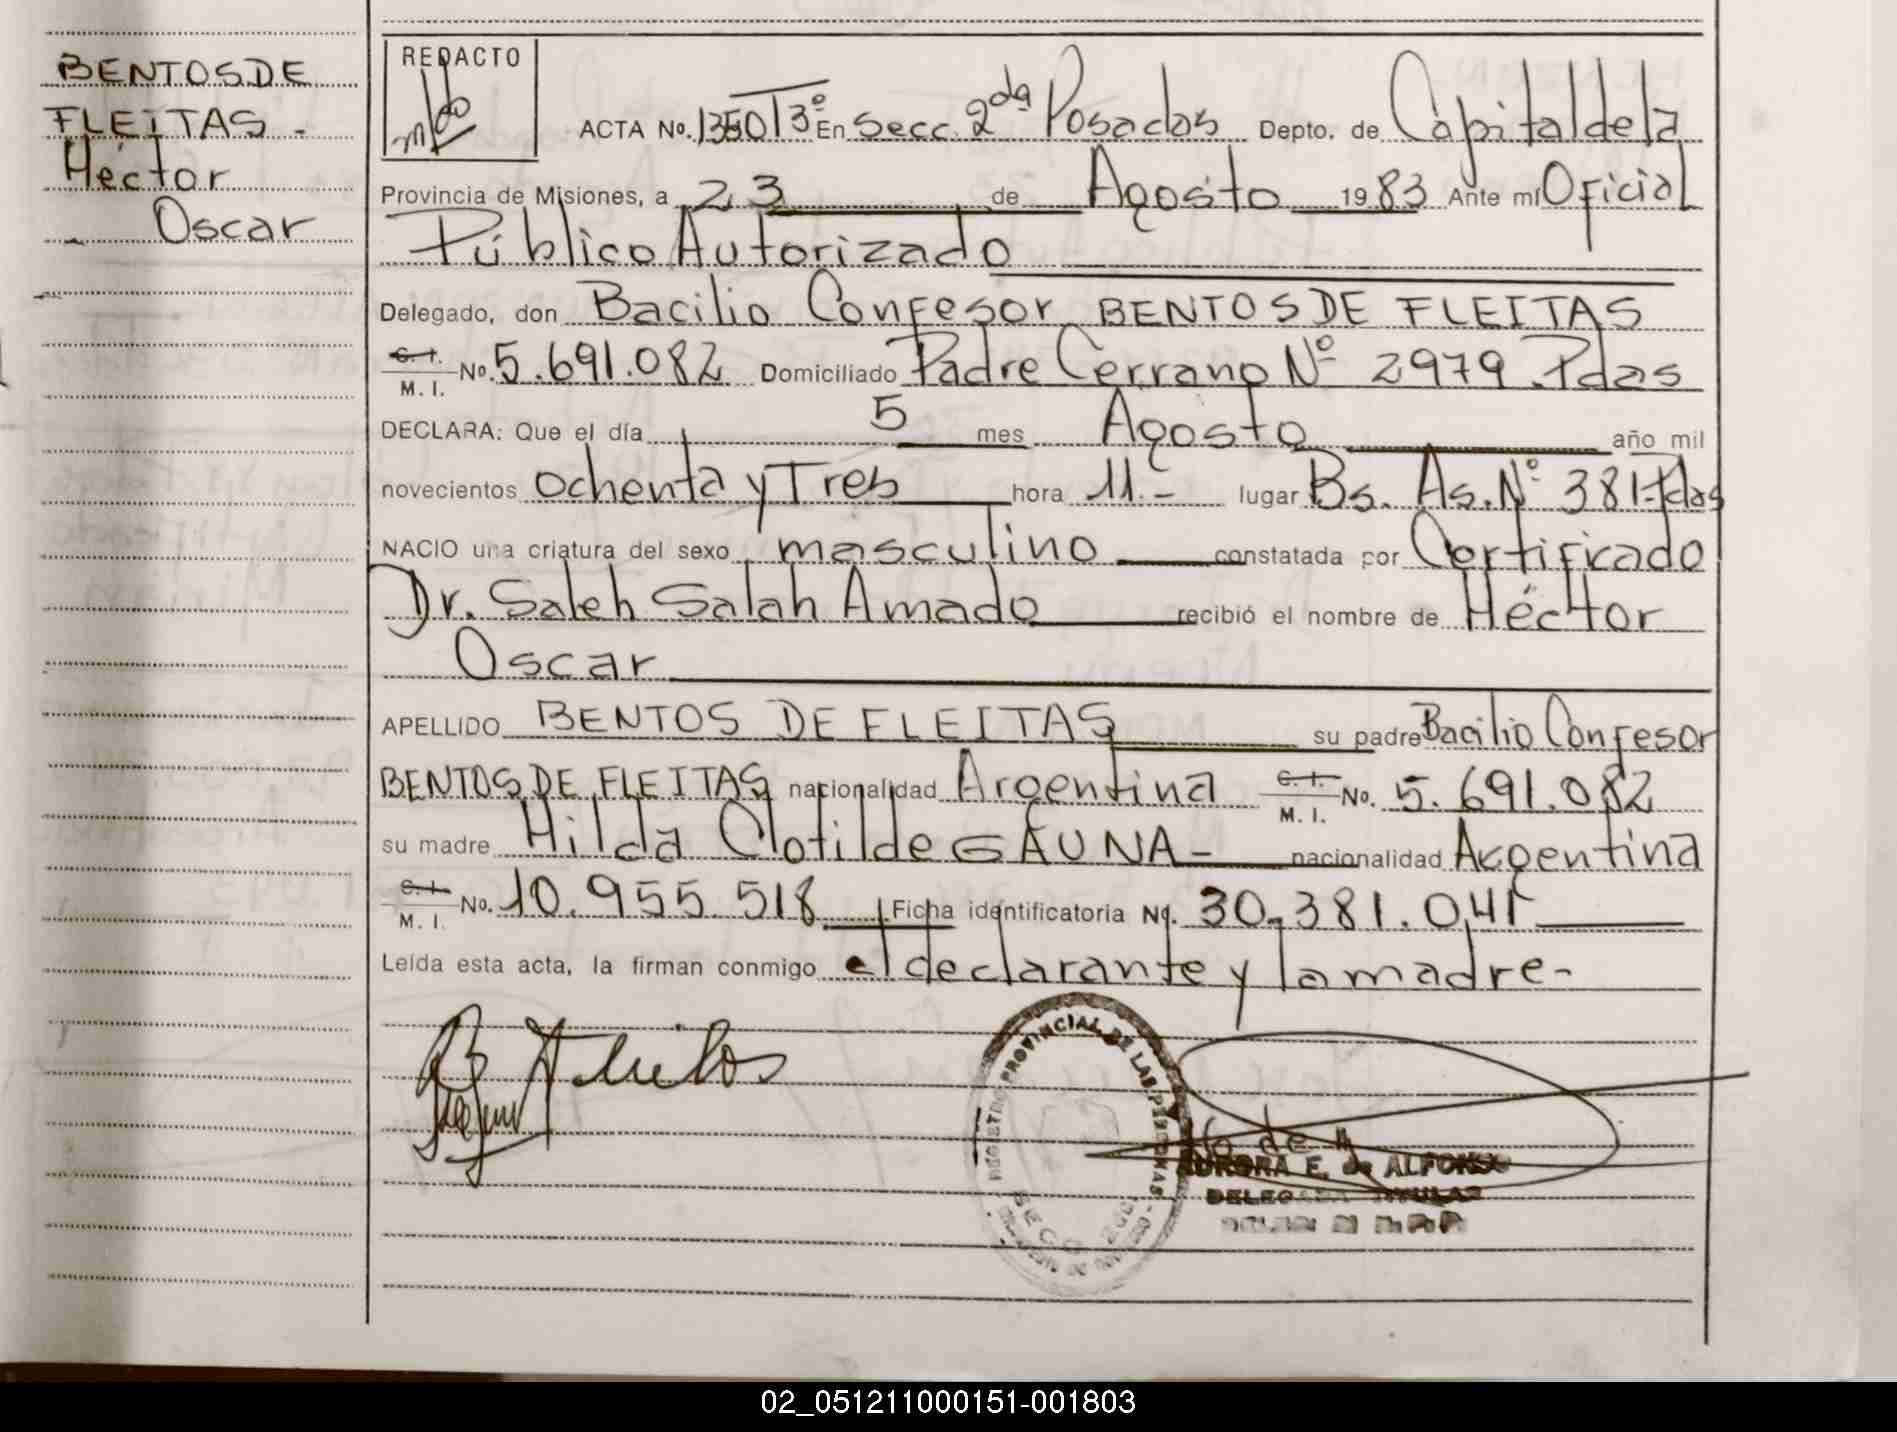 BENTOS DE
FLEITAS -
Héctor
Oscar
REDACTO
ACTA No. 1350 T 3° En Secc. 2da Posadas Depto. de Capital de la
Provincia de Misiones, a 23 de Agosto 1983 Ante mí Oficial
Público Autorizado
Delegado, don Bacilio Confesor BENTOS DE FLEITAS
C. I. M. I. No. 5.691.082 Domiciliado Padre Cerrano N° 2979 Pdas
DECLARA: Que el día 5 mes Agosto año mil
novecientos ochenta y Tres hora 11.- lugar Bs. As. N° 381-Pdas
NACIO una criatura del sexo masculino constatada por Certificado
Dr. Saleh Salah Amado recibió el nombre de Héctor
Oscar
APELLIDO BENTOS DE FLEITAS su padre Bacilio Confesor
BENTOS DE FLEITAS nacionalidad Argentina C. I. M. I. No. 5.691.082
su madre Hilda Clotilde GAUNA- nacionalidad Argentina
C. I. M. I. No. 10.955.518 Ficha identificatoria No. 30.381.041
Leída esta acta, la firman conmigo el declarante y la madre-
REGISTRO PROVINCIAL DE LAS PERSONAS
SECC. 2da
AURORA E. de ALFONSO
DELEGADA TITULAR
02_051211000151-001803